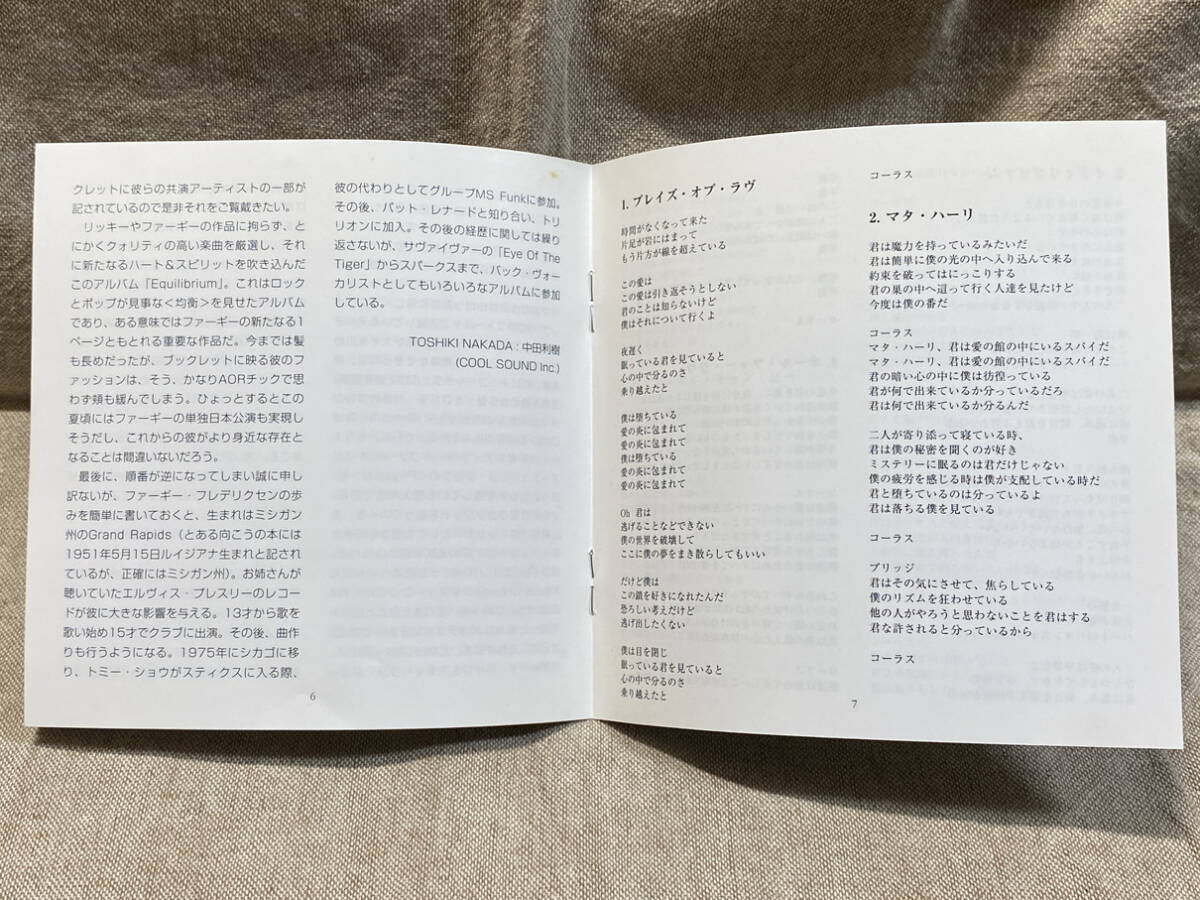 クレットに彼らの共演アーティストの一部が
記されているので是非それをご覧戴きたい。
リッキーやファーギーの作品に拘らず、と
にかくクォリティの高い楽曲を厳選し、それ
に新たなるハート＆スピリットを吹き込んだ
このアルバム「Equilibrium」。これはロック
とポップが見事な＜均衡＞を見せたアルバム
であり、ある意味ではファーギーの新たなる1
ページともとれる重要な作品だ。今までは髪
も長めだったが、ブックレットに映る彼のフ
ァッションは、そう、かなりAORチックで思
わず頬も緩んでしまう。ひょっとするとこの
夏頃にはファーギーの単独日本公演も実現し
そうだし、これからの彼がより身近な存在と
なることは間違いないだろう。
最後に、順番が逆になってしまい誠に申し
訳ないが、ファーギー・フレデリクセンの歩
みを簡単に書いておくと、生まれはミシガン
州のGrand Rapids（とある向こうの本には
1951年5月15日ルイジアナ生まれと記され
ているが、正確にはミシガン州）。お姉さんが
聴いていたエルヴィス・プレスリーのレコー
ドが彼に大きな影響を与える。13才から歌を
歌い始め15才でクラブに出演。その後、曲作
りも行うようになる。1975年にシカゴに移
り、トミー・ショウがスティクスに入る際、
6
彼の代わりとしてグループMS Funkに参加。
その後、パット・レナードと知り合い、トリ
リオンに加入。その後の経歴に関しては繰り
返さないが、サヴァイヴァーの「Eye Of The
Tiger」からスパークスまで、バック・ヴォー
カリストとしてもいろいろなアルバムに参加
している。
TOSHIKI NAKADA : 中田利樹
(COOL SOUND Inc.)
1. ブレイズ・オブ・ラヴ
時間がなくなって来た
片足が岩にはまって
もう片方が線を超えている
この愛は
この愛は引き返そうとしない
君のことは知らないけど
僕はそれについて行くよ
夜遅く
眠っている君を見ていると
心の中で分るのさ
乗り越えたと
僕は堕ちている
愛の炎に包まれて
愛の炎に包まれて
僕は堕ちている
愛の炎に包まれて
愛の炎に包まれて
Oh 君は
逃げることなどできない
僕の世界を破壊して
ここに僕の夢をまき散らしてもいい
だけど僕は
この鎖を好きになれたんだ
恐ろしい考えだけど
逃げ出したくない
僕は目を閉じ
眠っている君を見ていると
心の中で分るのさ
乗り越えたと
コーラス
2. マタ・ハーリ
君は魔力を持っているみたいだ
君は簡単に僕の光の中へ入り込んで来る
約束を破ってはにっこりする
君の巣の中へ這って行く人達を見たけど
今度は僕の番だ
コーラス
マタ・ハーリ、君は愛の館の中にいるスパイだ
マタ・ハーリ、君は愛の館の中にいるスパイだ
君の暗い心の中に僕は彷徨っている
君が何で出来ているか分っているだろ
君は何で出来ているか分るんだ
二人が寄り添って寝ている時、
君は僕の秘密を聞くのが好き
ミステリーに眠るのは君だけじゃない
僕の疲労を感じる時は僕が支配している時だ
君と堕ちているのは分っているよ
君は落ちる僕を見ている
コーラス
ブリッジ
君はその気にさせて、焦らしている
僕のリズムを狂わせている
他の人がやろうと思わないことを君はする
君な許されると分っているから
コーラス
7